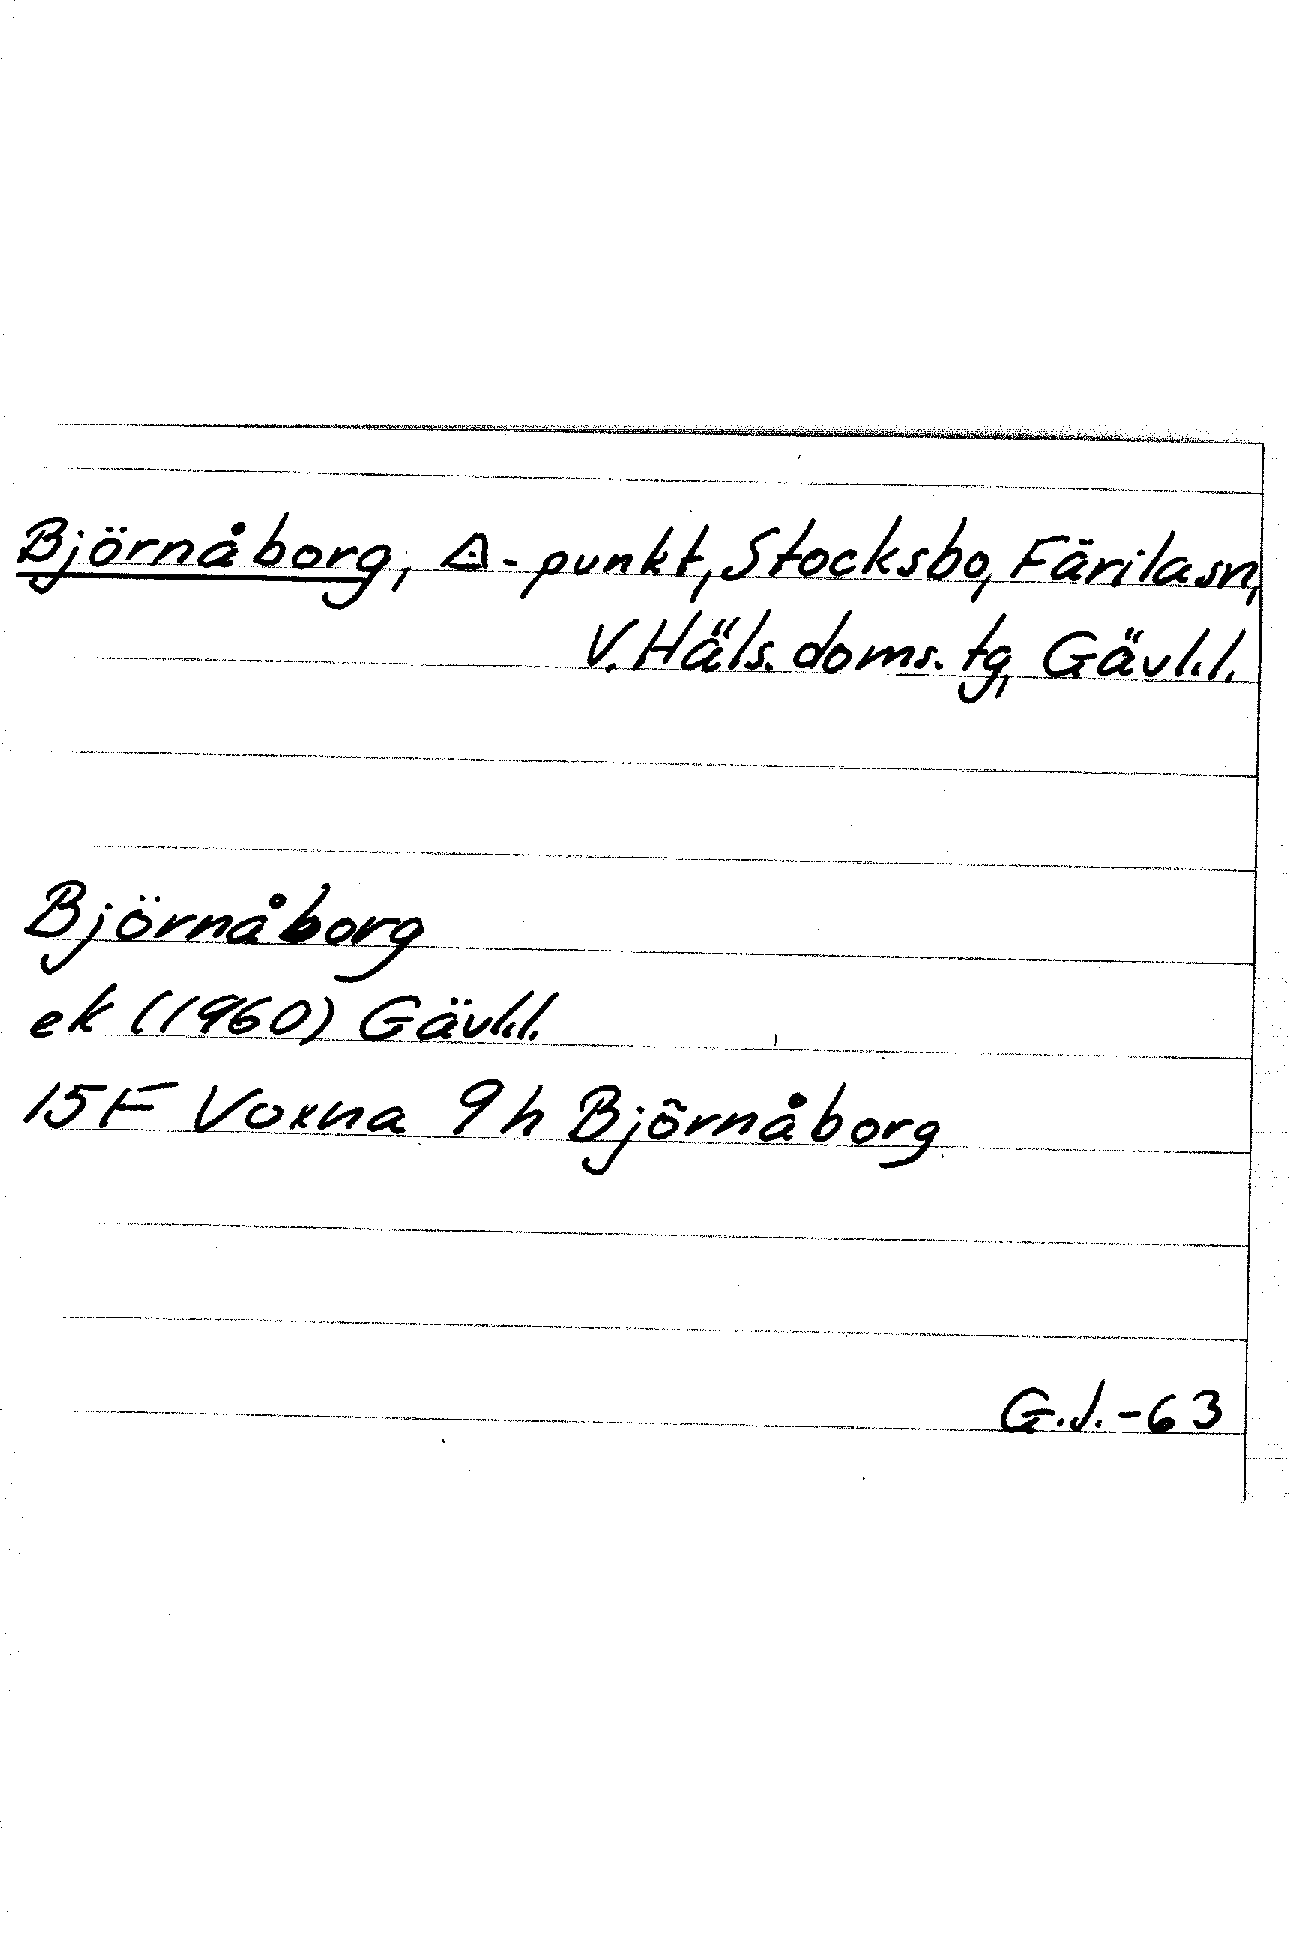 Björnåborg, △-punkt, Stocksbo, Färila sn,
V. Häls. doms. tg, Gävl.l.
Björnåborg
ek (1960) Gävl.l.
15F Voxna 9h Björnåborg
G.J.-63